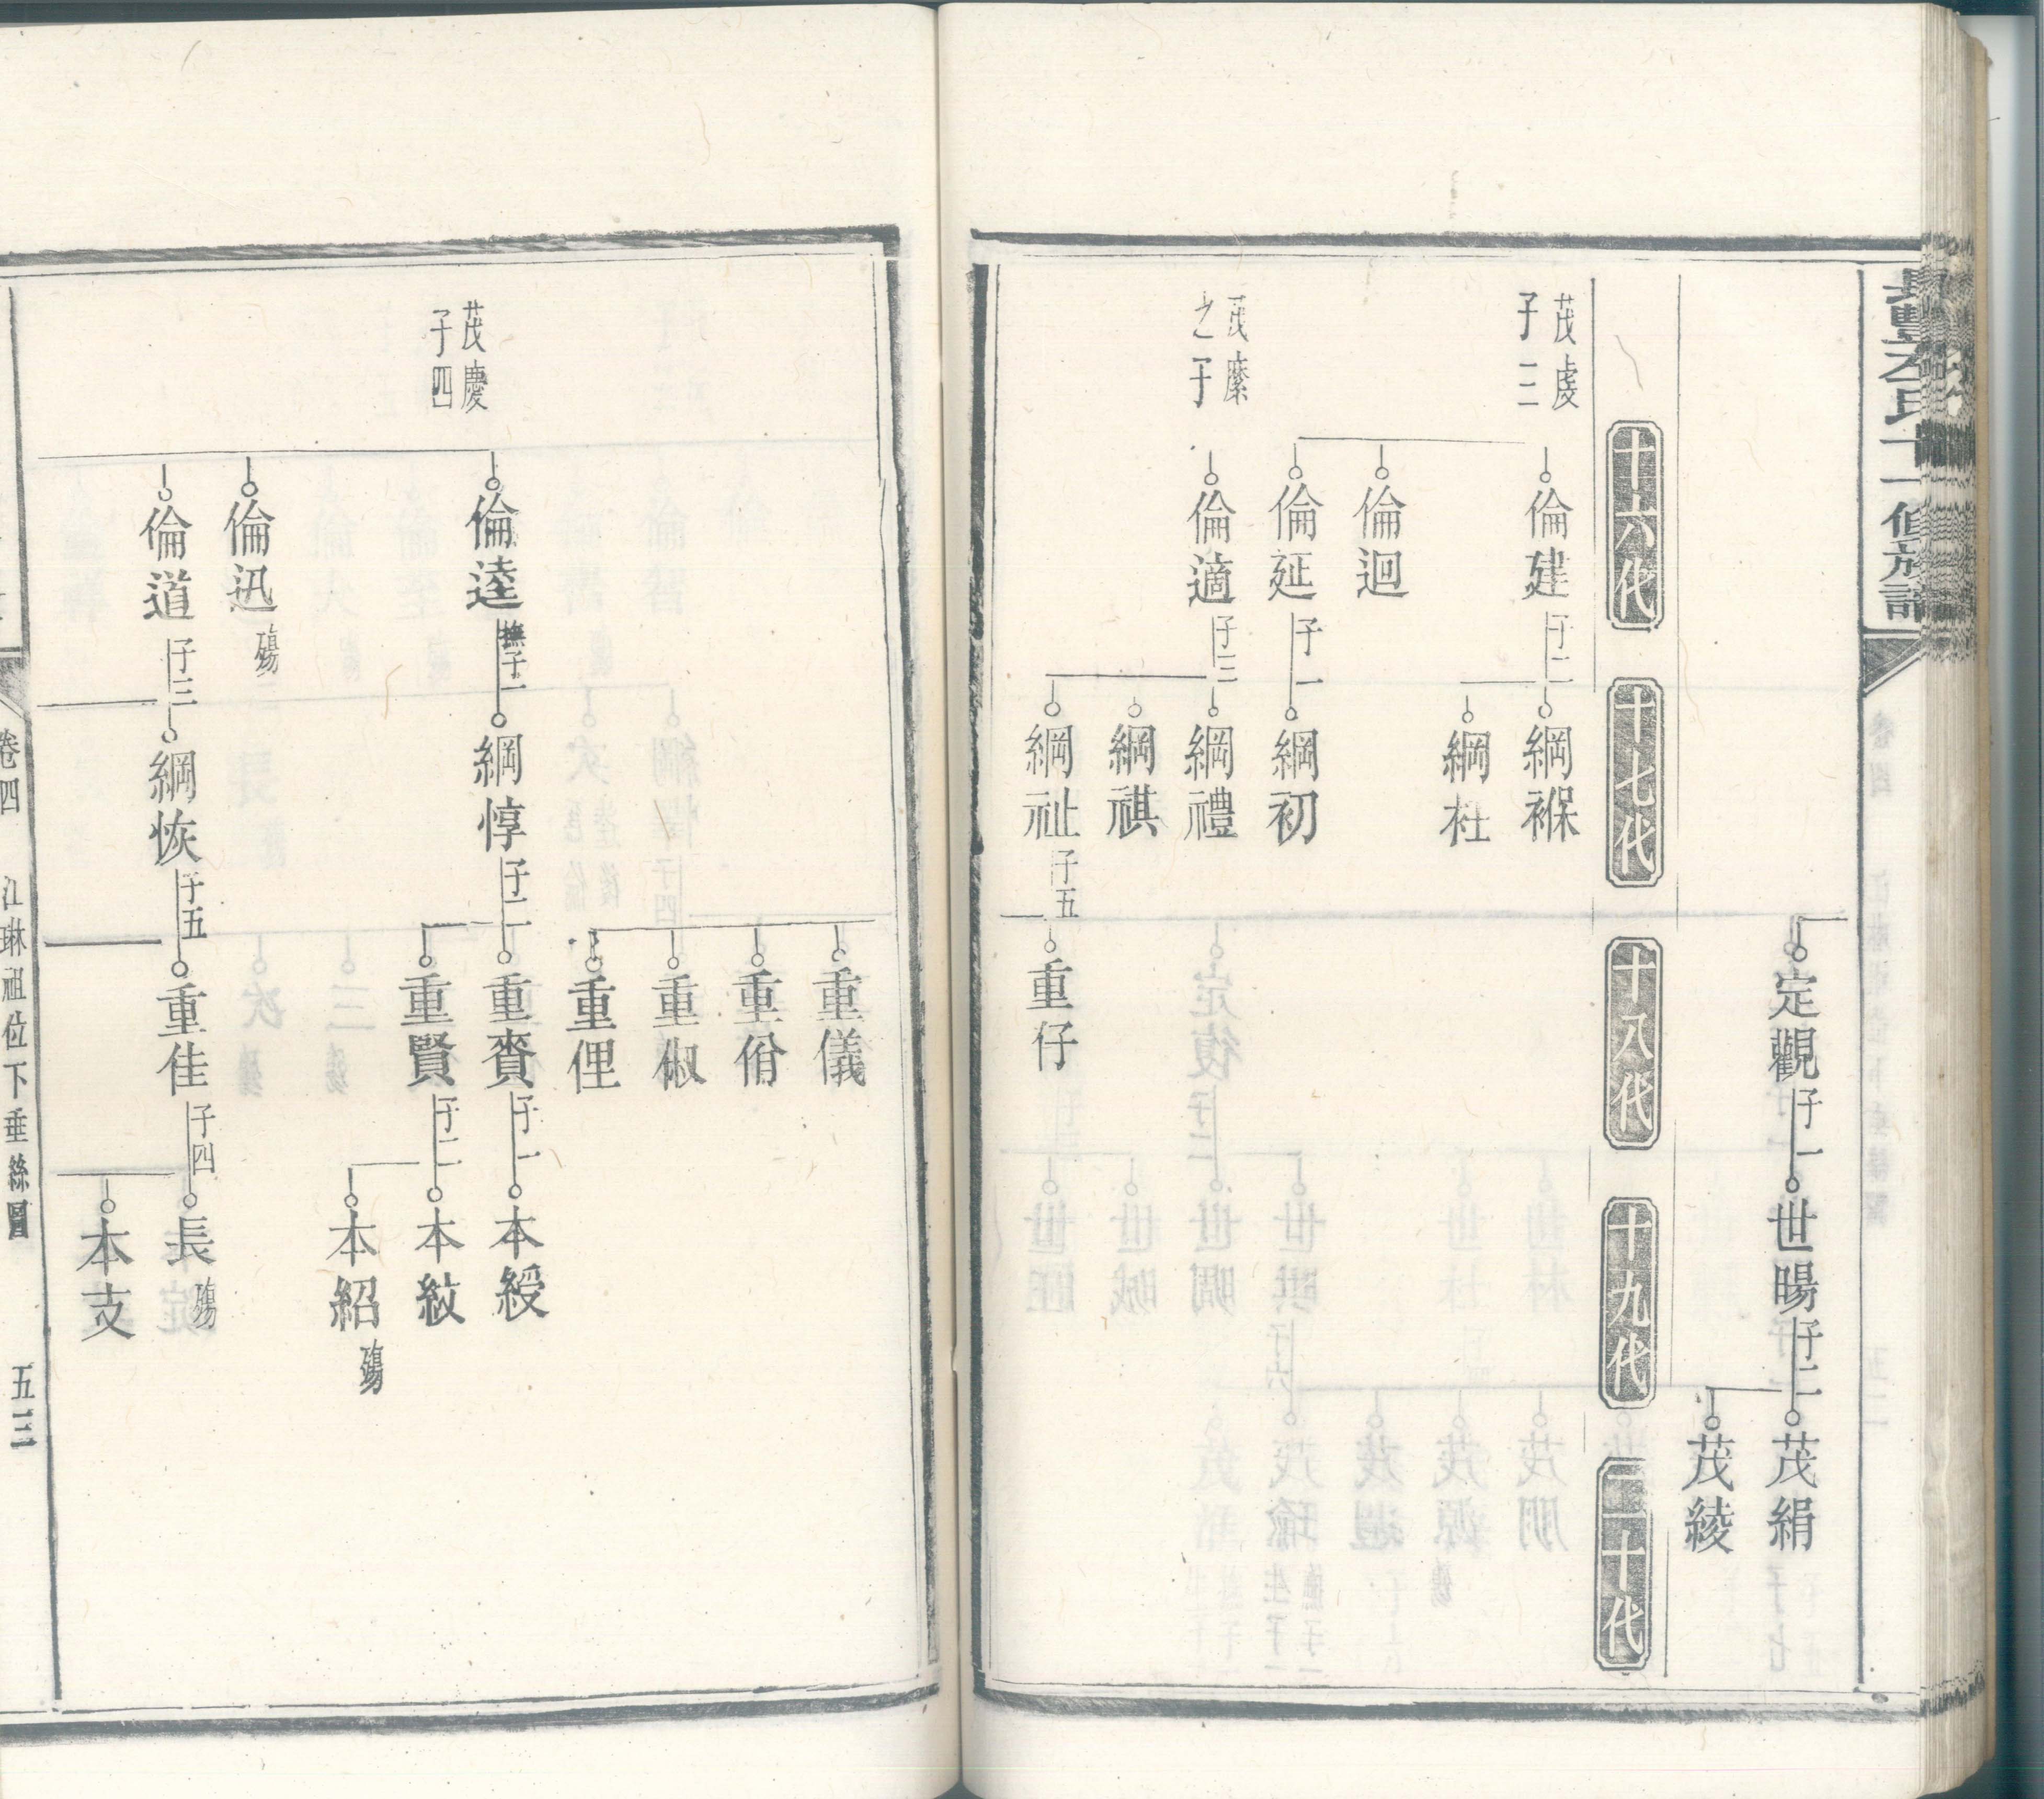 定觀
子一
世暘
子二
茂絹
茂綾
十六代
十七代
十八代
十九代
二十代
茂虔
子三
倫建
子二
綱褓
綱社
倫迴
倫延
子一
綱初
茂縻
之子
倫適
子三
綱禮
綱祺
綱祉
子五
重仔
重儀
重佾
重俶
重俚
茂慶
子四
倫逵
撫子一
綱惇
子二
重賚
子一
本綬
重賢
子二
本紋
本紹
殤
倫迅
殤
倫道
子三
綱恢
子五
重佳
子四
長
殤
本支
卷四
江琳祖位下垂絲圖
五三